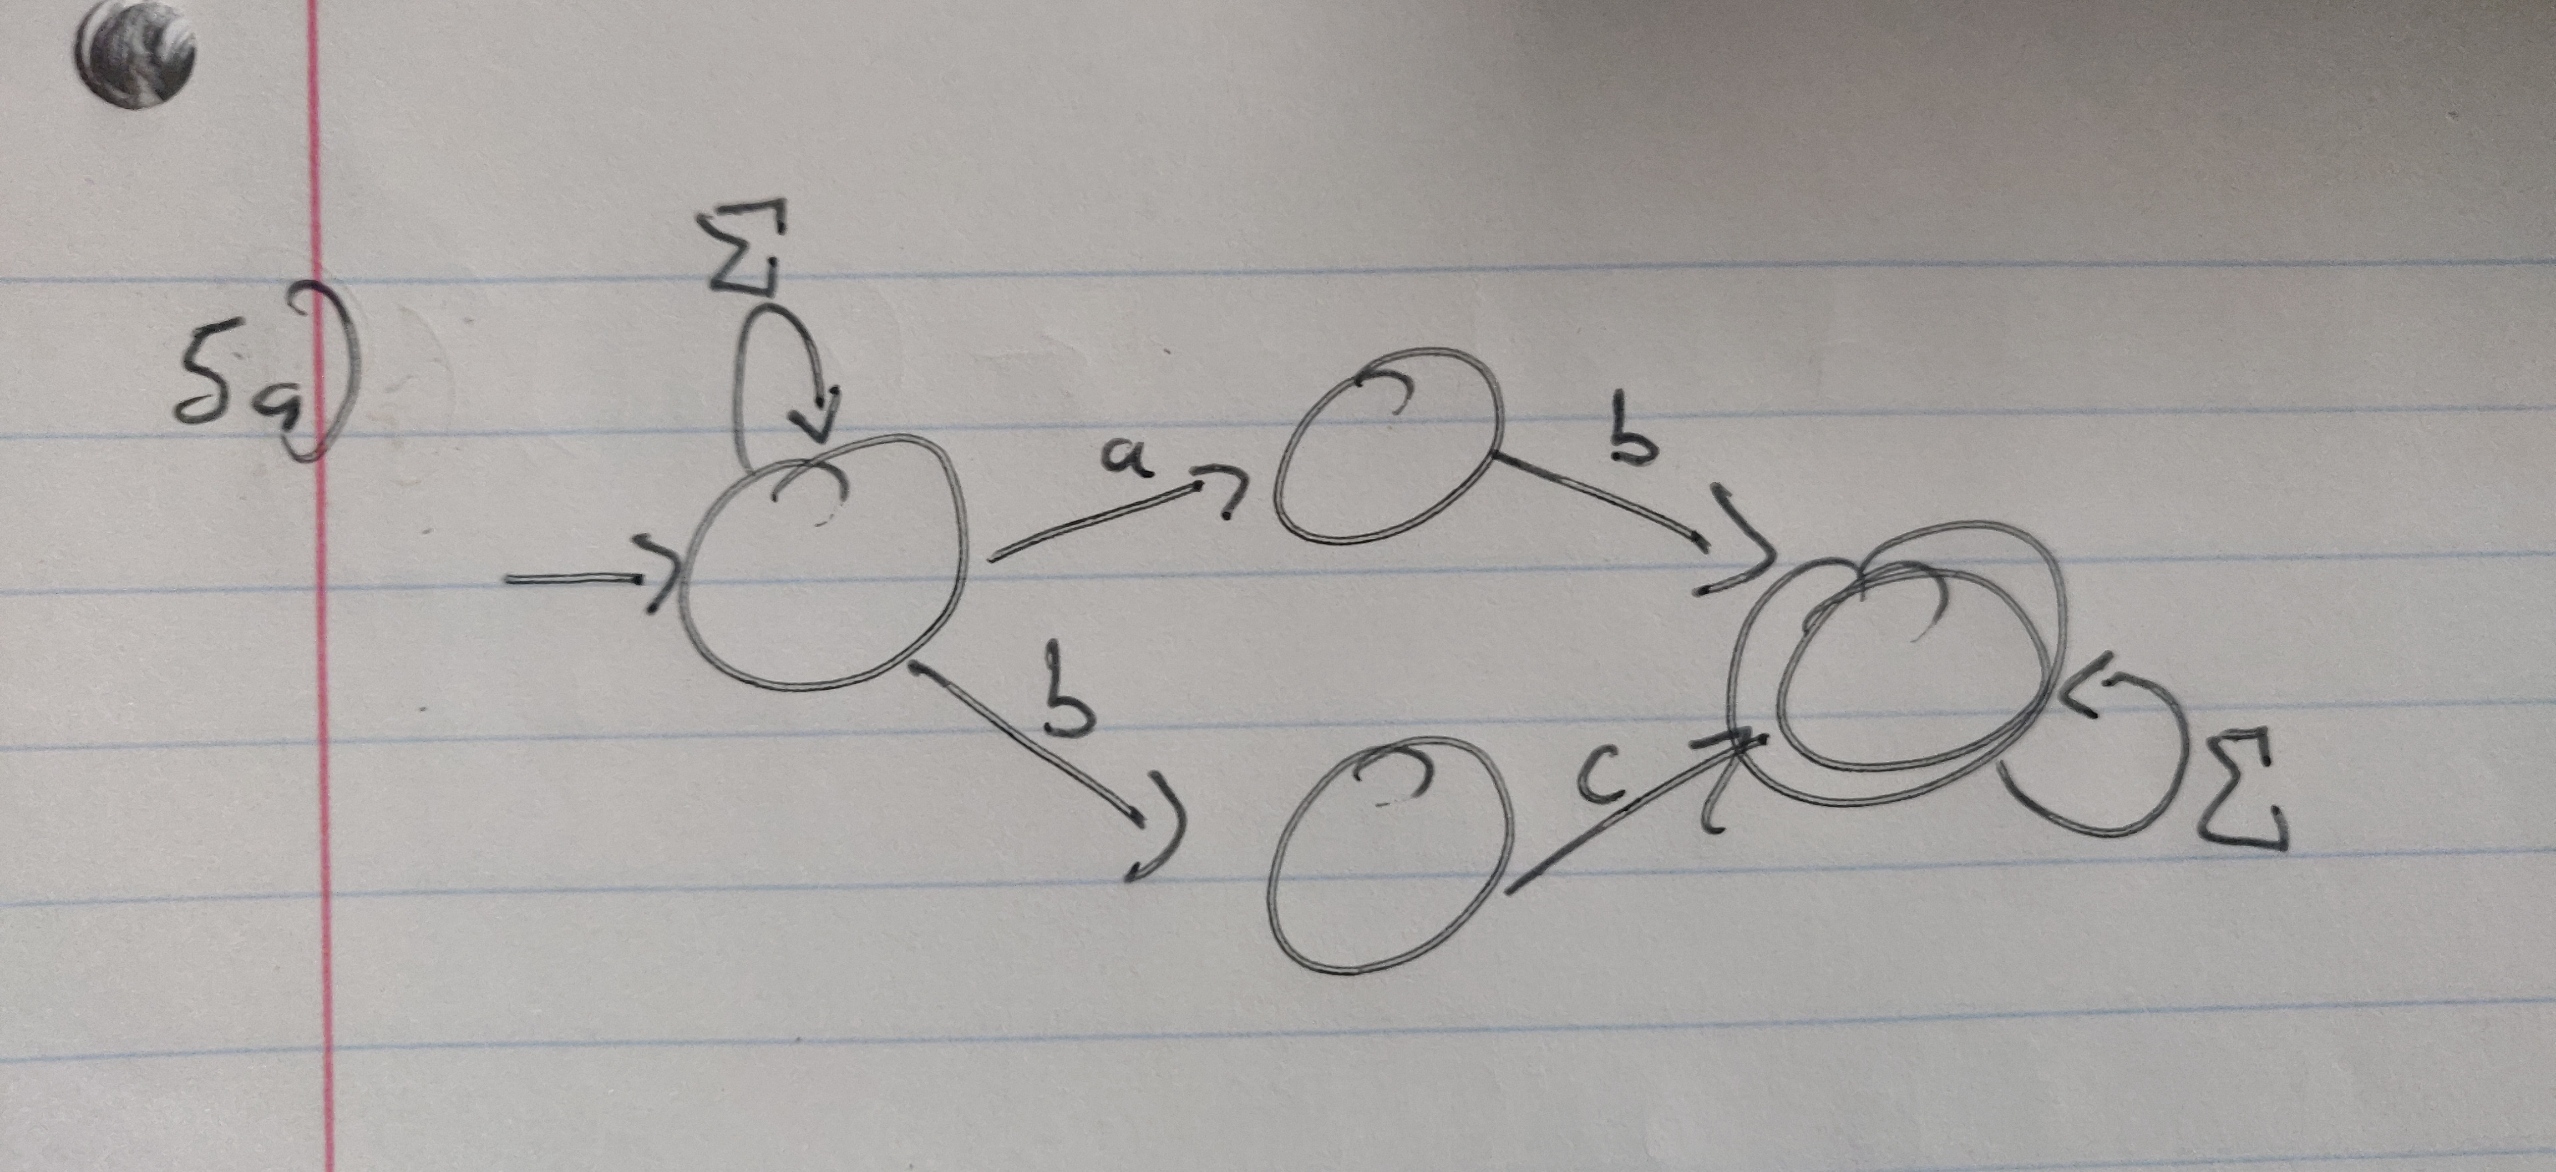 5a)
Σ
a
b
b
c
Σ